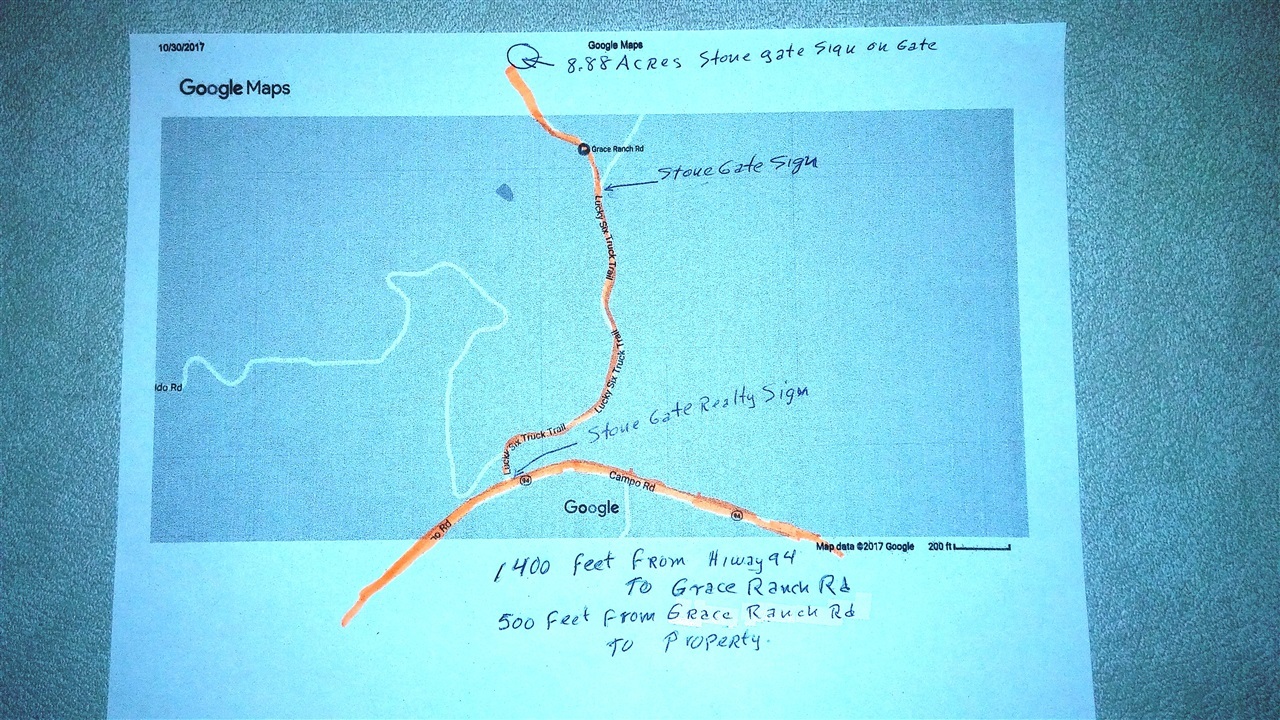 10/30/2017
Google Maps
8.88 Acres Stone gate Sign on Gate
Google Maps
Grace Ranch Rd
Stone Gate Sign
Lucky Six Truck Trail
Lucky Six Truck Trail
ldo Rd
Stone Gate Realty Sign
Lucky Six Truck Trail
94
Campo Rd
Google
94
o Rd
Map data ©2017 Google 200 ft
1400 feet From Hiway 94
To Grace Ranch Rd
500 Feet From Grace Ranch Rd
To Property.